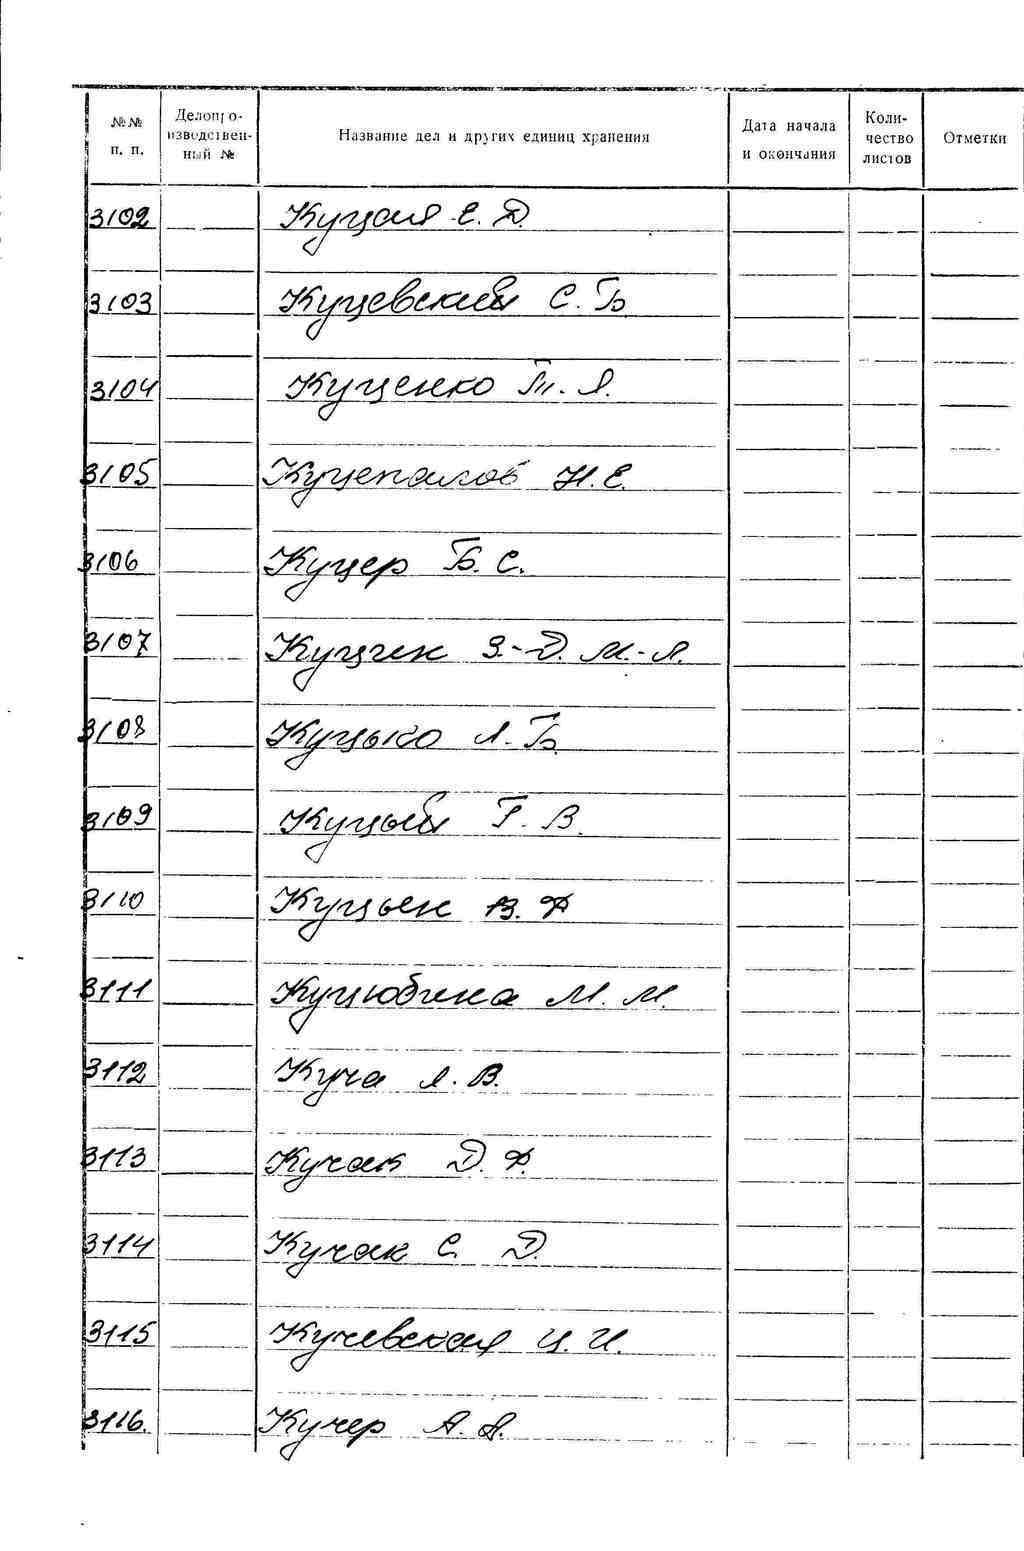 №№ п. п. Делопроизводственный № Название дел и других единиц хранения Дата начала и окончания Количество листов Отметки
3102 Куцая Е. Д.
3103 Куцевский С. Б.
3104 Куценко Т. Я.
3105 Куцепалов Н. Е.
3106 Куцер Б. С.
3107 Куцик З.-Д. М.-Л.
3108 Куцыко Л. Б.
3109 Куцый Г. В.
3110 Куцын В. Ф
3111 Куцюбина М. М.
3112 Куча Л. В.
3113 Кучак Д. Ф.
3114 Кучак С. Д.
3115 Кучевская Ц. И.
3116. Кучер А. А.